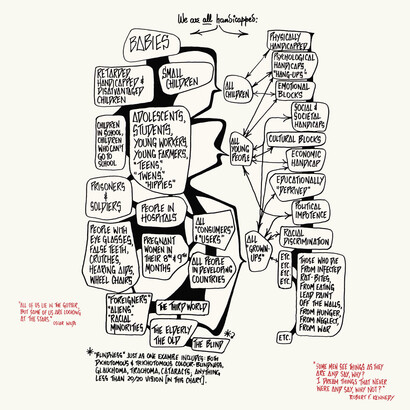 We are all handicapped:
BABIES
RETARDED
HANDICAPPED &
DISAVANTAGED
CHILDREN
SMALL
CHILDREN
CHILDREN
IN SCHOOL,
CHILDREN
WHO CAN'T
GO TO
SCHOOL
ADOLESCENTS,
STUDENTS,
YOUNG WORKERS,
YOUNG FARMERS,
"TEENS,"
"TWENS,"
"HIPPIES"
PRISONERS
&
SOLDIERS
PEOPLE IN
HOSPITALS
PEOPLE WITH
EYE GLASSES,
FALSE TEETH,
CRUTCHES,
HEARING AIDS,
WHEEL CHAIRS
PREGNANT
WOMEN IN
THEIR 8th & 9th
MONTHS
ALL
"CONSUMERS"
& "USERS"
ALL PEOPLE
IN DEVELOPING
COUNTRIES
"FOREIGNERS"
"ALIENS"
"RACIAL
MINORITIES
THE THIRD WORLD
THE ELDERLY
THE OLD
THE BLIND
*
ALL
CHILDREN
ALL
YOUNG
PEOPLE
ALL
"GROWN-
UPS"
PHYSICALLY
HANDICAPPED
PSYCHOLOGICAL
HANDICAPS,
"HANG-UPS"
EMOTIONAL
BLOCKS
SOCIAL &
SOCIETAL
HANDICAPS
CULTURAL BLOCKS
ECONOMIC
HANDICAP
EDUCATIONALLY
"DEPRIVED"
POLITICAL
IMPOTENCE
RACIAL
DISCRIMINATION
ETC
ETC
ETC
ETC
ETC.
THOSE WHO DIE
FROM INFECTED
RAT-BITES,
FROM EATING
LEAD PAINT
OFF THE WALLS,
FROM HUNGER,
FROM NEGLECT,
FROM WAR
*"BLINDNESS" JUST AS ONE EXAMPLE INCLUDES: BOTH
DICHOTOMOUS & TRICHOTOMOUS COLOUR-BLINDNESS,
GLAUCHOMA, TRACHOMA, CATARACTS, ANYTHING
LESS THAN 20/20 VISION [IN THIS CHART].
"ALL OF US LIE IN THE GUTTER,
BUT SOME OF US ARE LOOKING
AT THE STARS."
OSCAR WILDE
"SOME MEN SEE THINGS AS THEY
ARE AND SAY, WHY?
I DREAM THINGS THAT NEVER
WERE AND SAY, WHY NOT?"
ROBERT F. KENNEDY